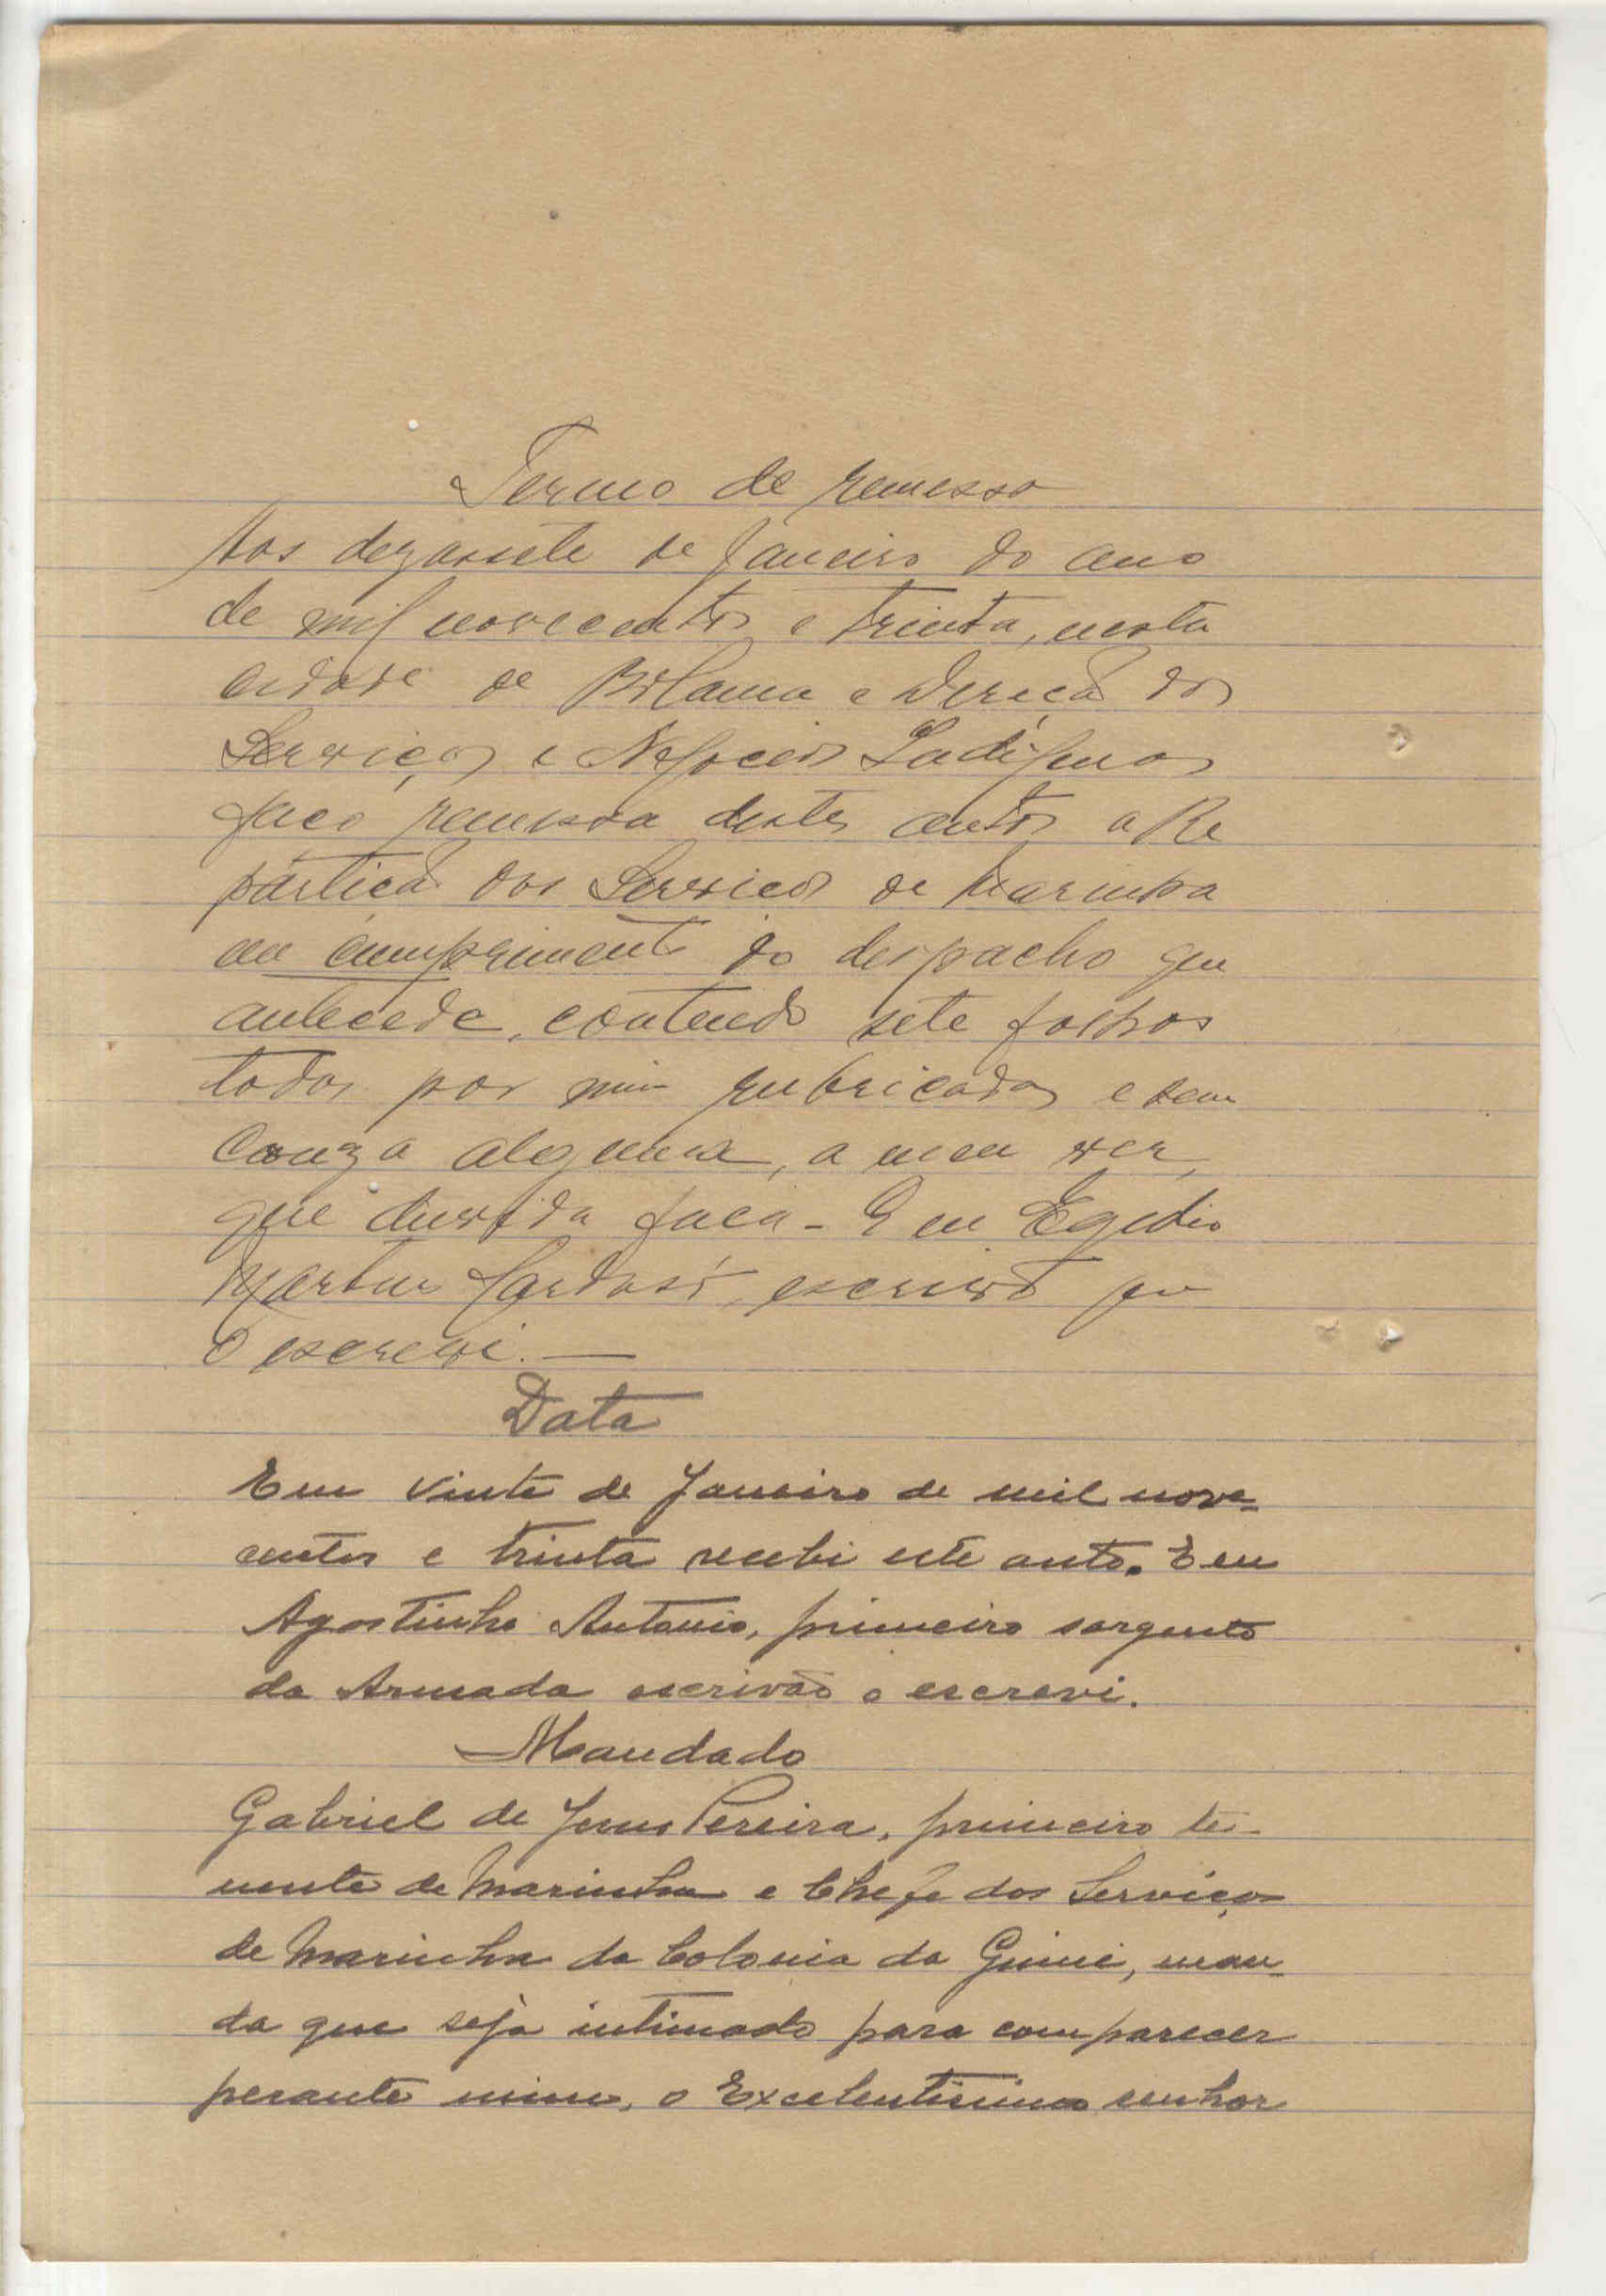 Termo de remessa
Aos dezassete de Janeiro do ano
de mil novecentos e trinta, nesta
cidade de Bolama e Direcã dos
Serviços e Negocios Indígenas
faço remessa destes autos a Re
partiçã dos Serviços de Marinha
em cumprimento do despacho que
antecede, contendo sete folhas
todas por mim rubricadas e sem
couza alguma, a meu ver,
que duvida faça - E eu Egidio
Martins Cardoso, escrivão que
o escrevi. —
Data
Em vinte de Janeiro de mil nove-
centos e trinta recebi este auto. E eu
Agostinho Antonio, primeiro sargento
da Armada escrivão o escrevi.
Mandado
Gabriel de Jesus Pereira, primeiro te-
nente de Marinha e Chefe dos Serviços
de Marinha da Colonia da Guiné, man-
da que seja intimado para comparecer
perante mim, o Excelentissimo senhor